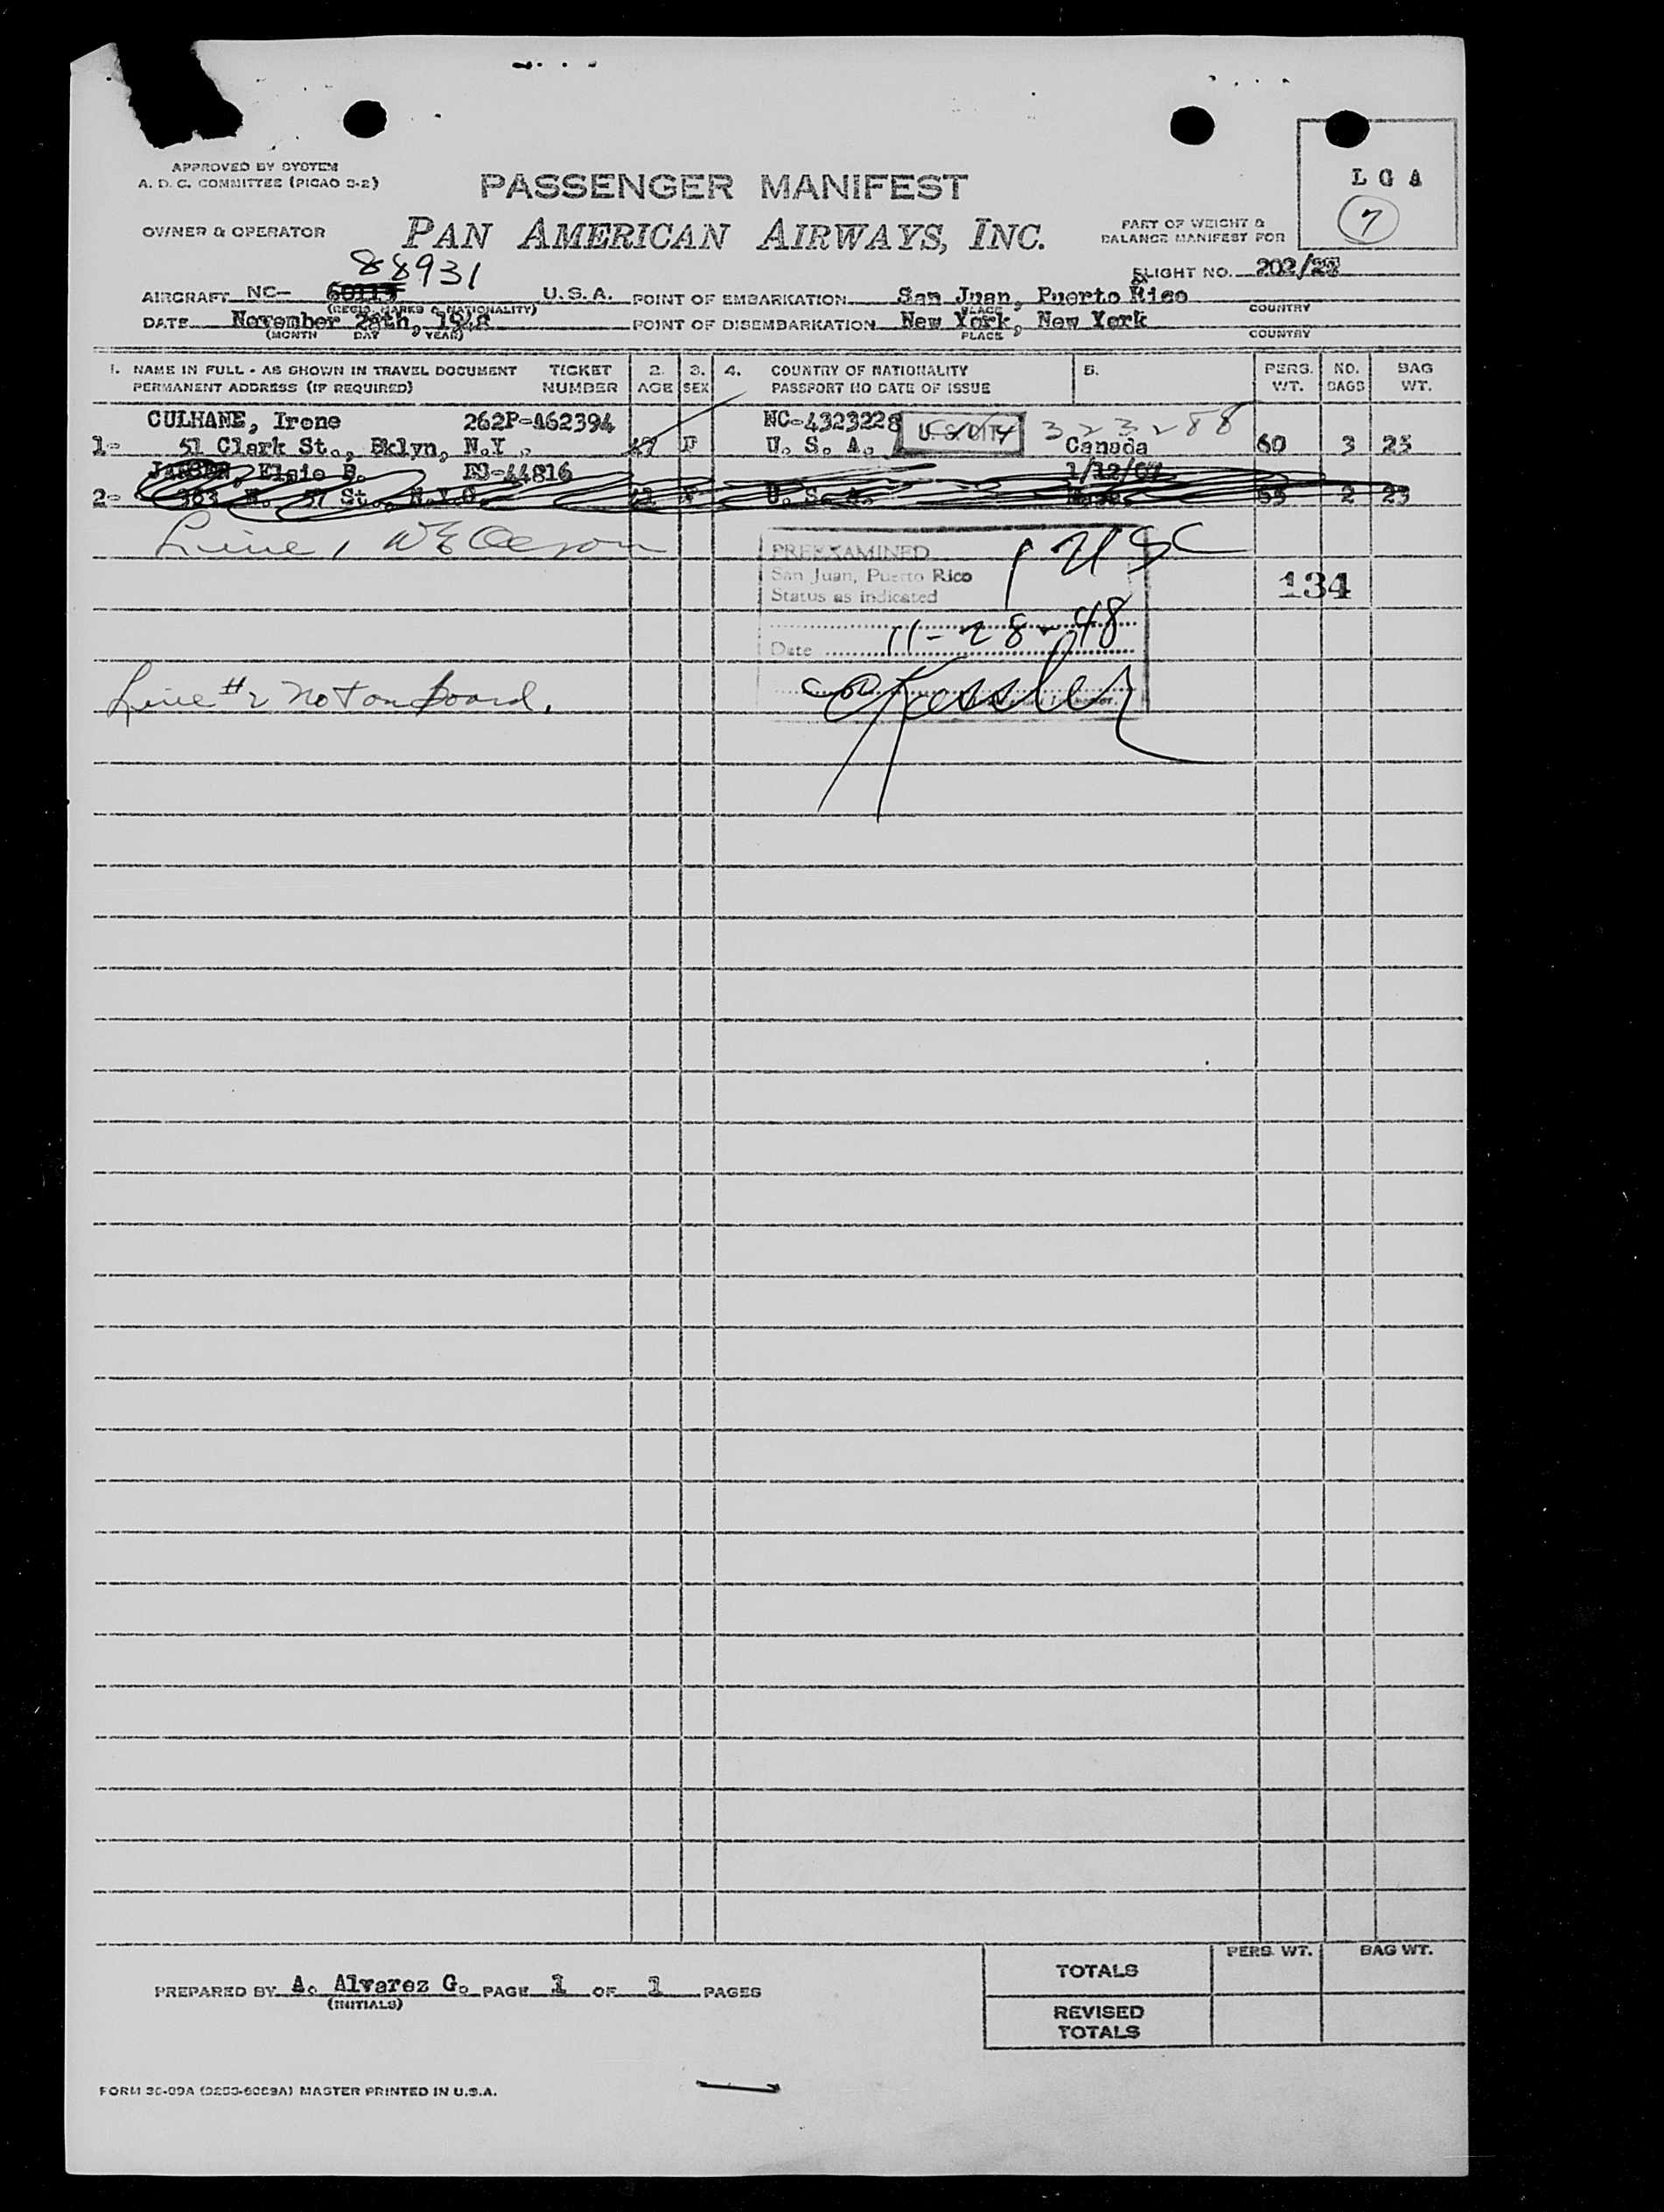 APPROVED BY SYSTEM
A. D. C. COMMITTEE (PICAO S-2)
PASSENGER MANIFEST
L G A
7
OWNER & OPERATOR
PAN AMERICAN AIRWAYS, INC.
PART OF WEIGHT &
BALANCE MANIFEST FOR
88931
FLIGHT NO. 202/28
AIRCRAFT NC- U.S.A. POINT OF EMBARKATION San Juan, Puerto Rico
(REGIS. MARKS & NATIONALITY) PLACE COUNTRY
DATE November 28th, 1948 POINT OF DISEMBARKATION New York, New York
(MONTH DAY YEAR) PLACE COUNTRY
1. NAME IN FULL - AS SHOWN IN TRAVEL DOCUMENT TICKET 2. 3. 4. COUNTRY OF NATIONALITY 5. PERS. NO. BAG
PERMANENT ADDRESS (IF REQUIRED) NUMBER AGE SEX PASSPORT NO DATE OF ISSUE WT. BAGS WT.
CULHANE, Irene 262P-A62394 NC-4323228 U.S. CITY 323288
1- 51 Clark St., Bklyn, N.Y. F U. S. A. Canada 60 3 25
Elsie B. 44816 1/12/07
2- 57 St., N.Y.C. F U. S. A. 55 2 23
Line 1
PREEXAMINED 1 USC
San Juan, Puerto Rico
Status as indicated
134
Date 11-28-48
Line #2 not on board.
Kessler
PREPARED BY A. Alvarez G. PAGE 1 OF 1 PAGES
(INITIALS)
PERS. WT. BAG WT.
TOTALS
REVISED
TOTALS
MASTER PRINTED IN U.S.A.